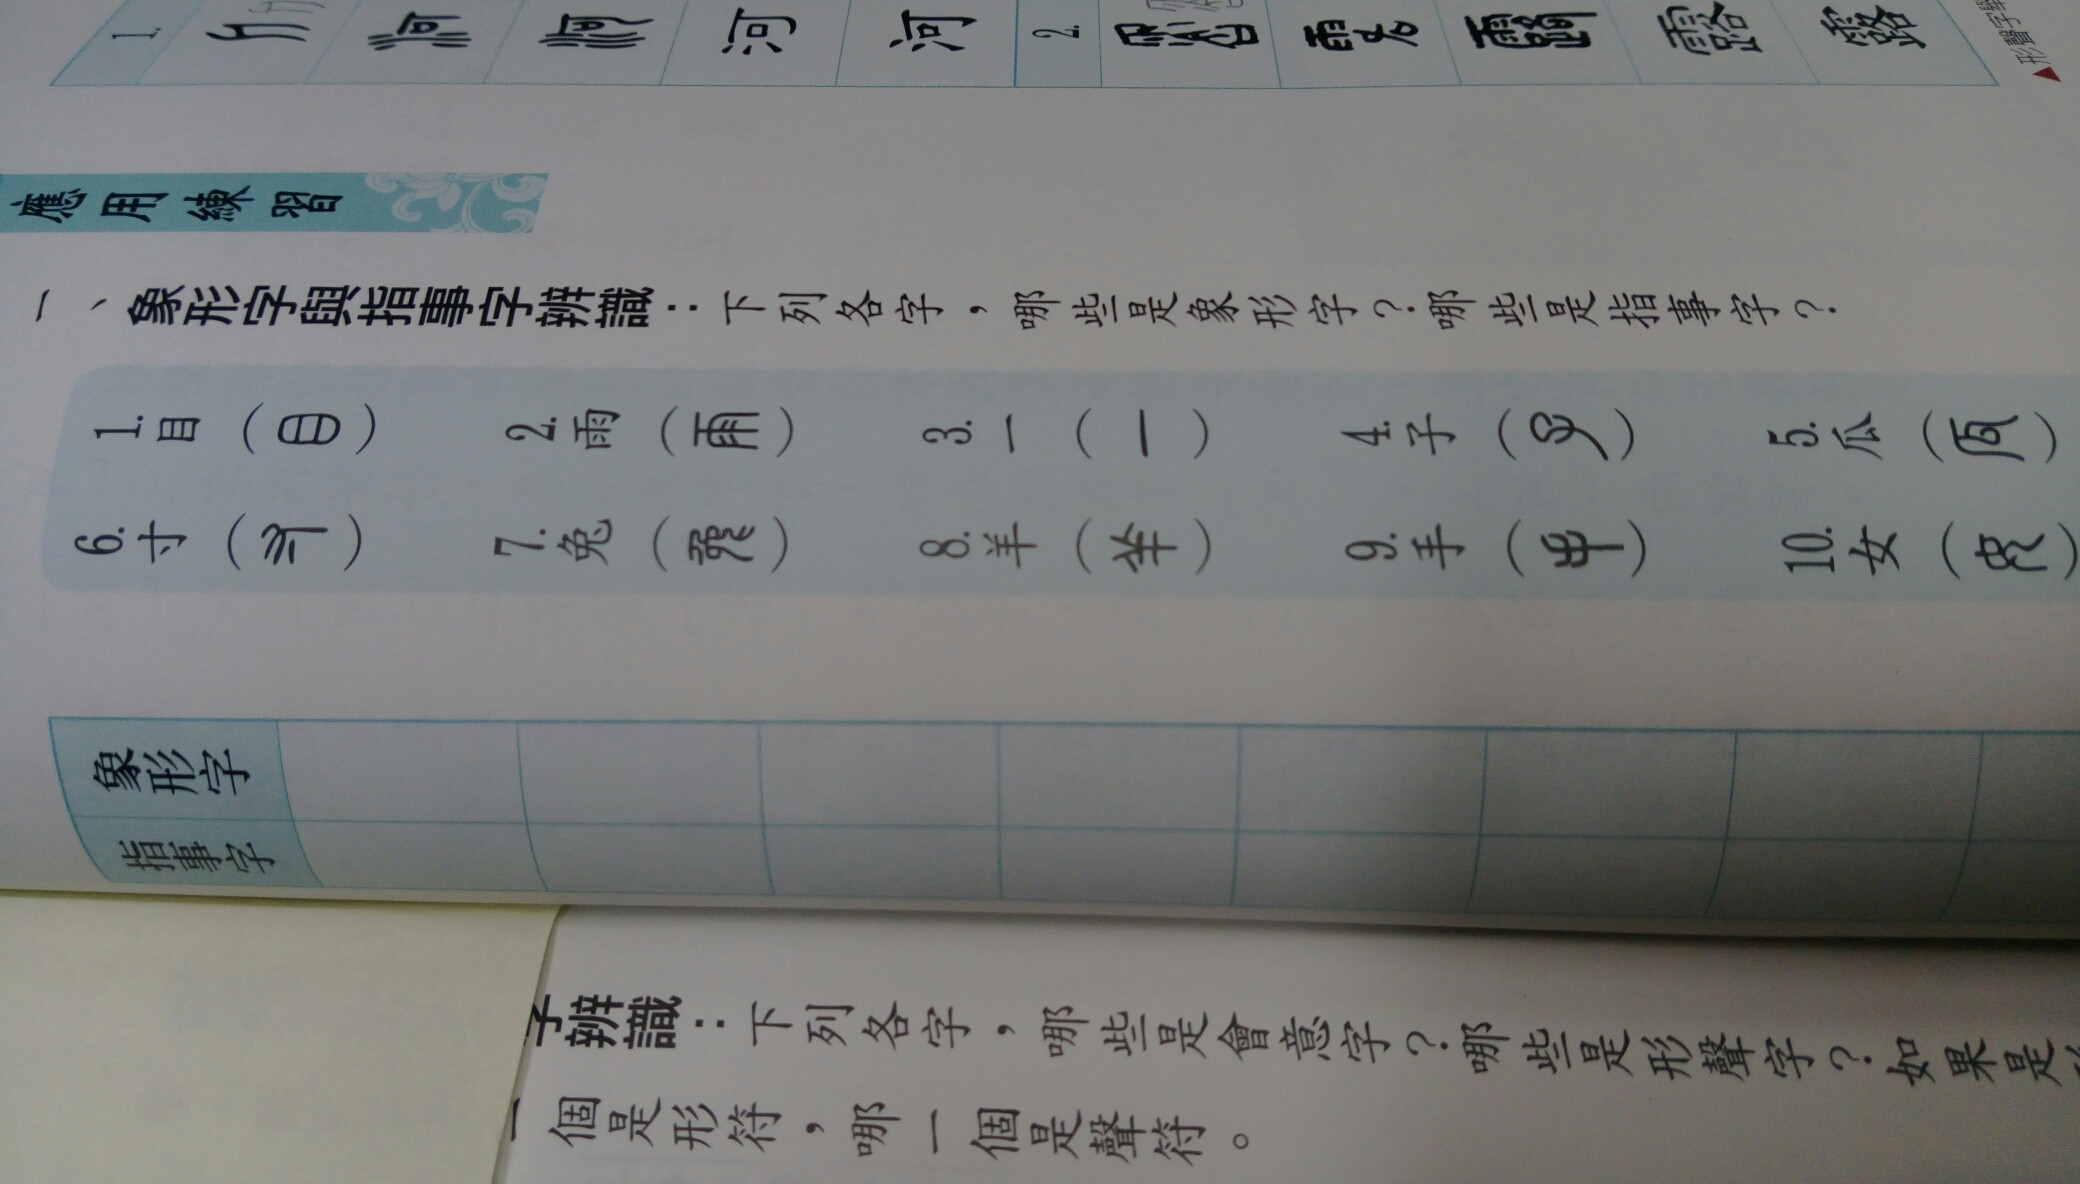 1. 河 河
2. 露 露
▲形聲字舉
應用練習
一、象形字與指事字辨識：下列各字，哪些是象形字？哪些是指事字？
1. 目（） 2. 雨（） 3. 一（一） 4. 子（） 5. 瓜（）
6. 寸（） 7. 兔（） 8. 羊（） 9. 手（） 10. 女（）
象形字
指事字
字辨識：下列各字，哪些是會意字？哪些是形聲字？如果是
一個是形符，哪一個是聲符。